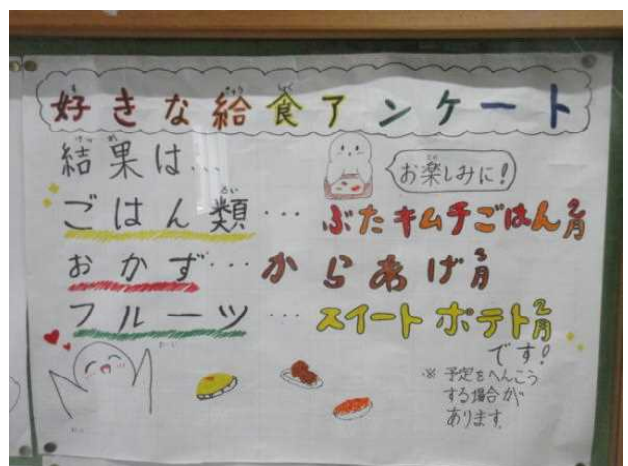 好きな給食アンケート
結果は…
お楽しみに!
ごはん類… ぶたキムチごはん2月
おかず… からあげ3月
フルーツ… スイートポテト2月
です!
※予定をへんこう
する場合が
あります。